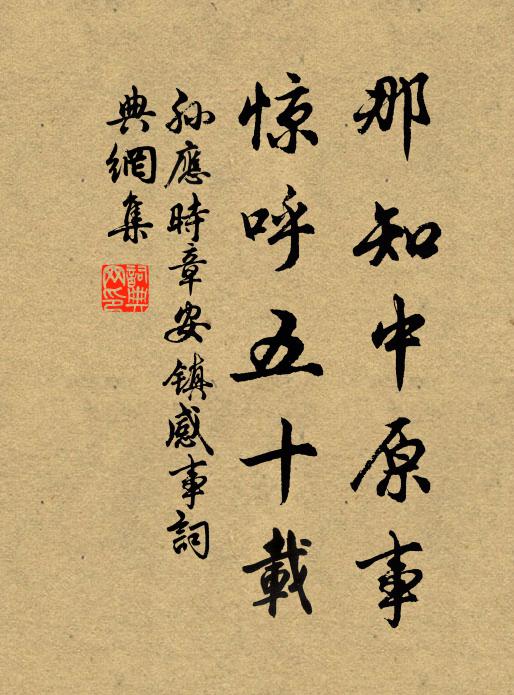 那知中原事
惊呼五十載
孙應時章安镇感事詞
典網集
詞典
网印